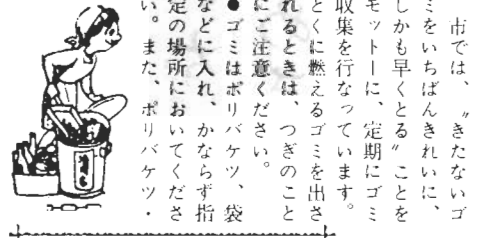 市では、〝きたないゴ
ミをいちばんきれいに、
しかも早くとる〟ことを
モットーに、定期にゴミ
収集を行なっています。
とくに燃えるゴミを出さ
れるときは、つぎのこと
にご注意ください。
●ゴミはポリバケツ、袋
などに入れ、かならず指
定の場所においてくださ
い。また、ポリバケツ・